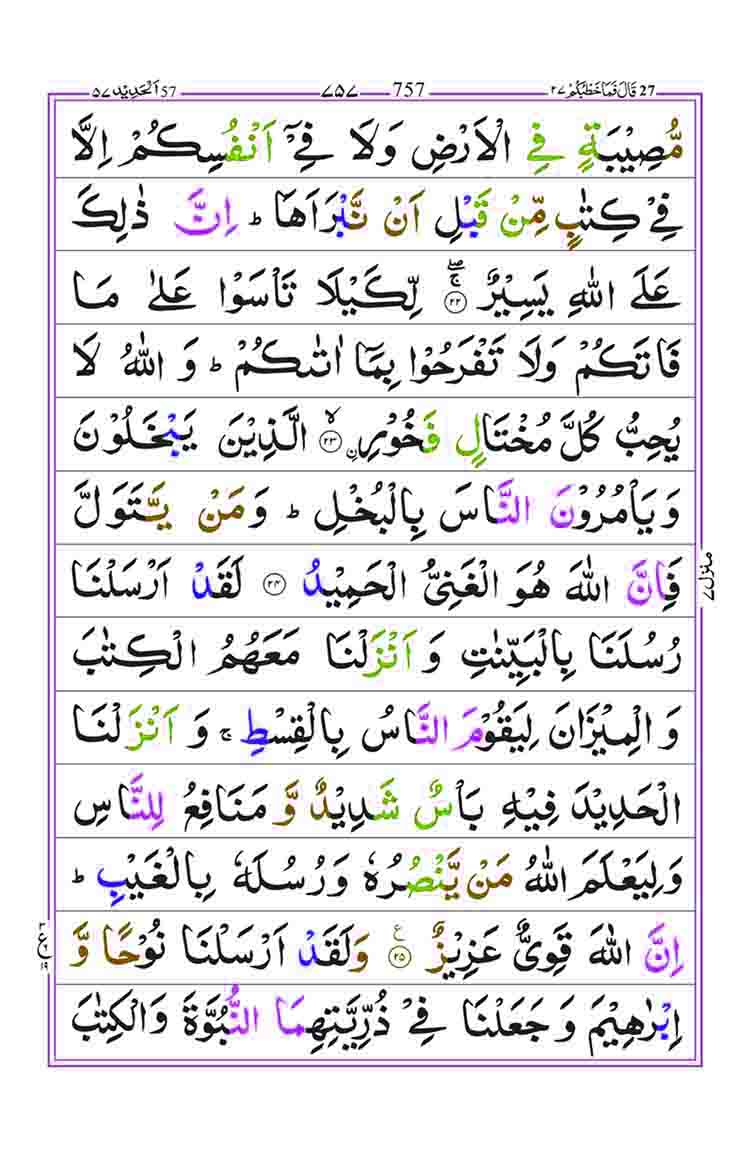 27 قَالَ فَمَا خَطْبُكُمْ ٢٧ 757 ٧٥٧ 57 اَلْحَدِیْد ٥٧
مُّصِیْبَةٍ فِی الْاَرْضِ وَلَا فِیْۤ اَنْفُسِكُمْ اِلَّا
فِیْ كِتٰبٍ مِّنْ قَبْلِ اَنْ نَّبْرَاَهَا ؕ اِنَّ ذٰلِكَ
عَلَی اللّٰهِ یَسِیْرٌ ۖۚ ﴿۲۲﴾ لِّكَیْلَا تَاْسَوْا عَلٰی مَا
فَاتَكُمْ وَلَا تَفْرَحُوْا بِمَاۤ اٰتٰىكُمْ ؕ وَ اللّٰهُ لَا
یُحِبُّ كُلَّ مُخْتَالٍ فَخُوْرِ ۙ ﴿۲۳﴾ ِ۟الَّذِیْنَ یَبْخَلُوْنَ
وَیَاْمُرُوْنَ النَّاسَ بِالْبُخْلِ ؕ وَمَنْ یَّتَوَلَّ
فَاِنَّ اللّٰهَ هُوَ الْغَنِیُّ الْحَمِیْدُ ﴿۲۴﴾ لَقَدْ اَرْسَلْنَا
رُسُلَنَا بِالْبَیِّنٰتِ وَ اَنْزَلْنَا مَعَهُمُ الْكِتٰبَ
وَ الْمِیْزَانَ لِیَقُوْمَ النَّاسُ بِالْقِسْطِ ۚ وَ اَنْزَلْنَا
الْحَدِیْدَ فِیْهِ بَاْسٌ شَدِیْدٌ وَّ مَنَافِعُ لِلنَّاسِ
وَلِیَعْلَمَ اللّٰهُ مَنْ یَّنْصُرُهٗ وَ رُسُلَهٗ بِالْغَیْبِ ؕ
اِنَّ اللّٰهَ قَوِیٌّ عَزِیْزٌ ﴿۲۵﴾ ع وَلَقَدْ اَرْسَلْنَا نُوْحًا وَّ
اِبْرٰهِیْمَ وَ جَعَلْنَا فِیْ ذُرِّیَّتِهِمَا النُّبُوَّةَ وَالْكِتٰبَ
منزل ٧
ع